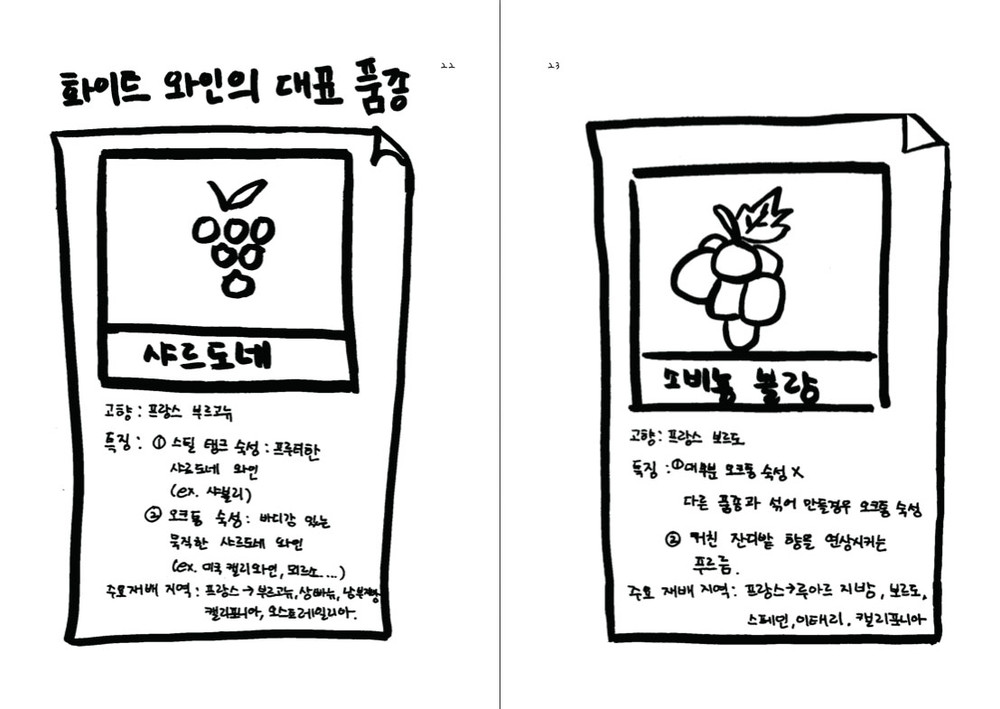 22
화이트 와인의 대표 품종
샤르도네
고향 : 프랑스 부르고뉴
특징 : ① 스틸 탱크 숙성 : 프루티한
샤르도네 와인
(ex. 샤블리)
② 오크통 숙성 : 바디감 있는
묵직한 샤르도네 와인
(ex. 미국 캘리와인, 뫼르소....)
주요재배 지역 : 프랑스→부르고뉴, 샹빠뉴, 남부지방
캘리포니아, 오스트레일리아.
23
소비뇽 블랑
고향 : 프랑스 보르도
특징 : ①대부분 오크통 숙성 X
다른 품종과 섞어 만들경우 오크통 숙성
② 거친 잔디밭 향을 연상시키는
푸르름.
주요 재배 지역 : 프랑스→루아르 지방, 보르도,
스페인, 이태리, 캘리포니아